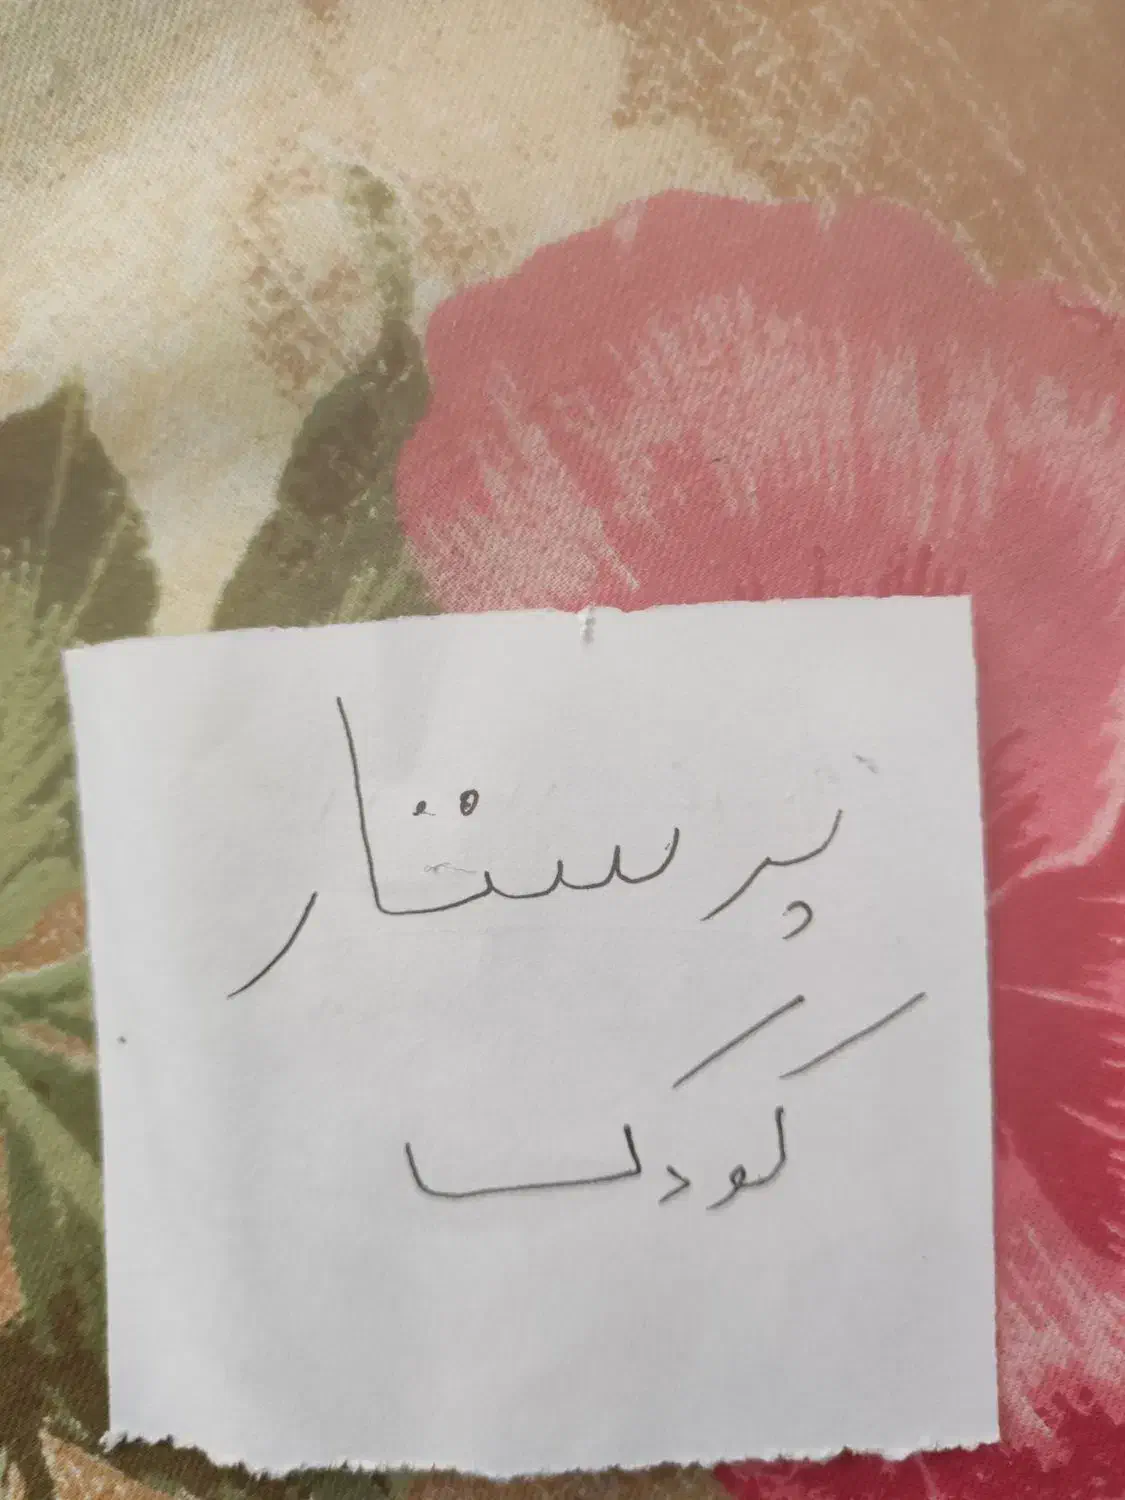 پرستار
کودک